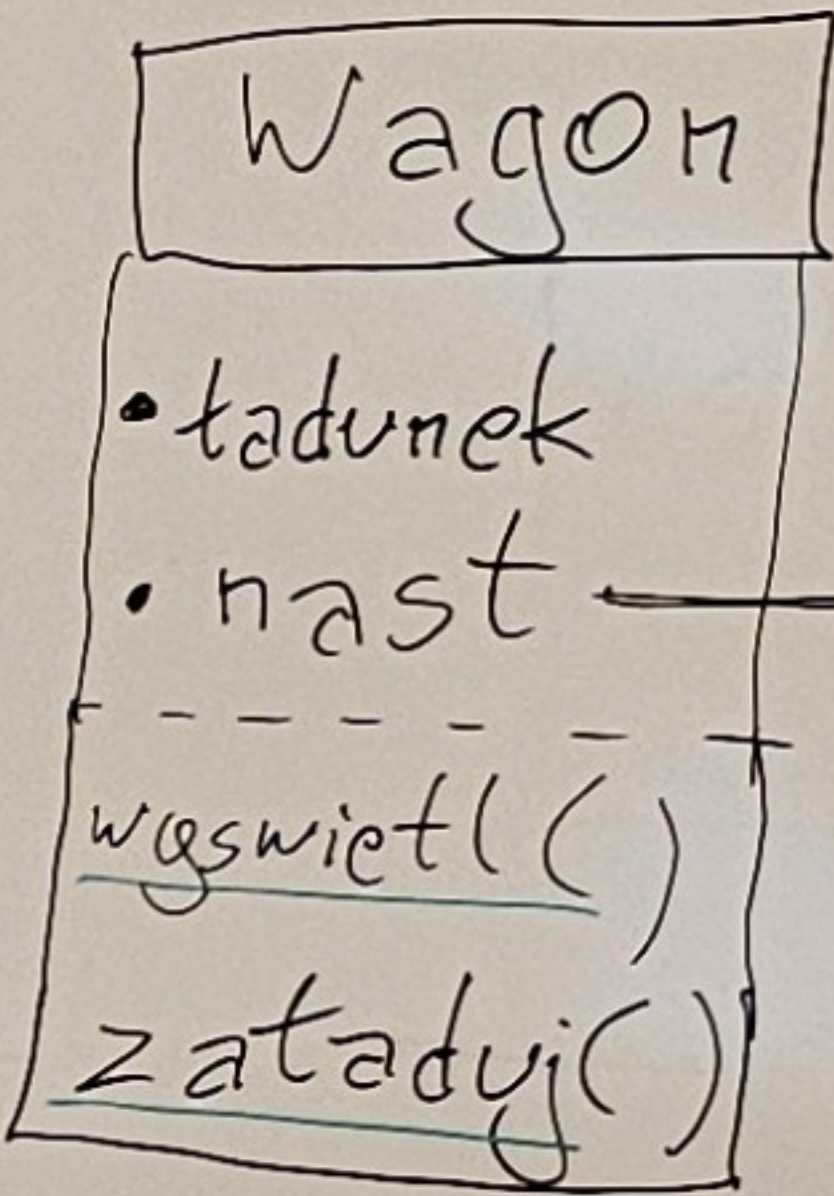 Wagon
• ładunek
• nast
wyswietl()
załaduj()